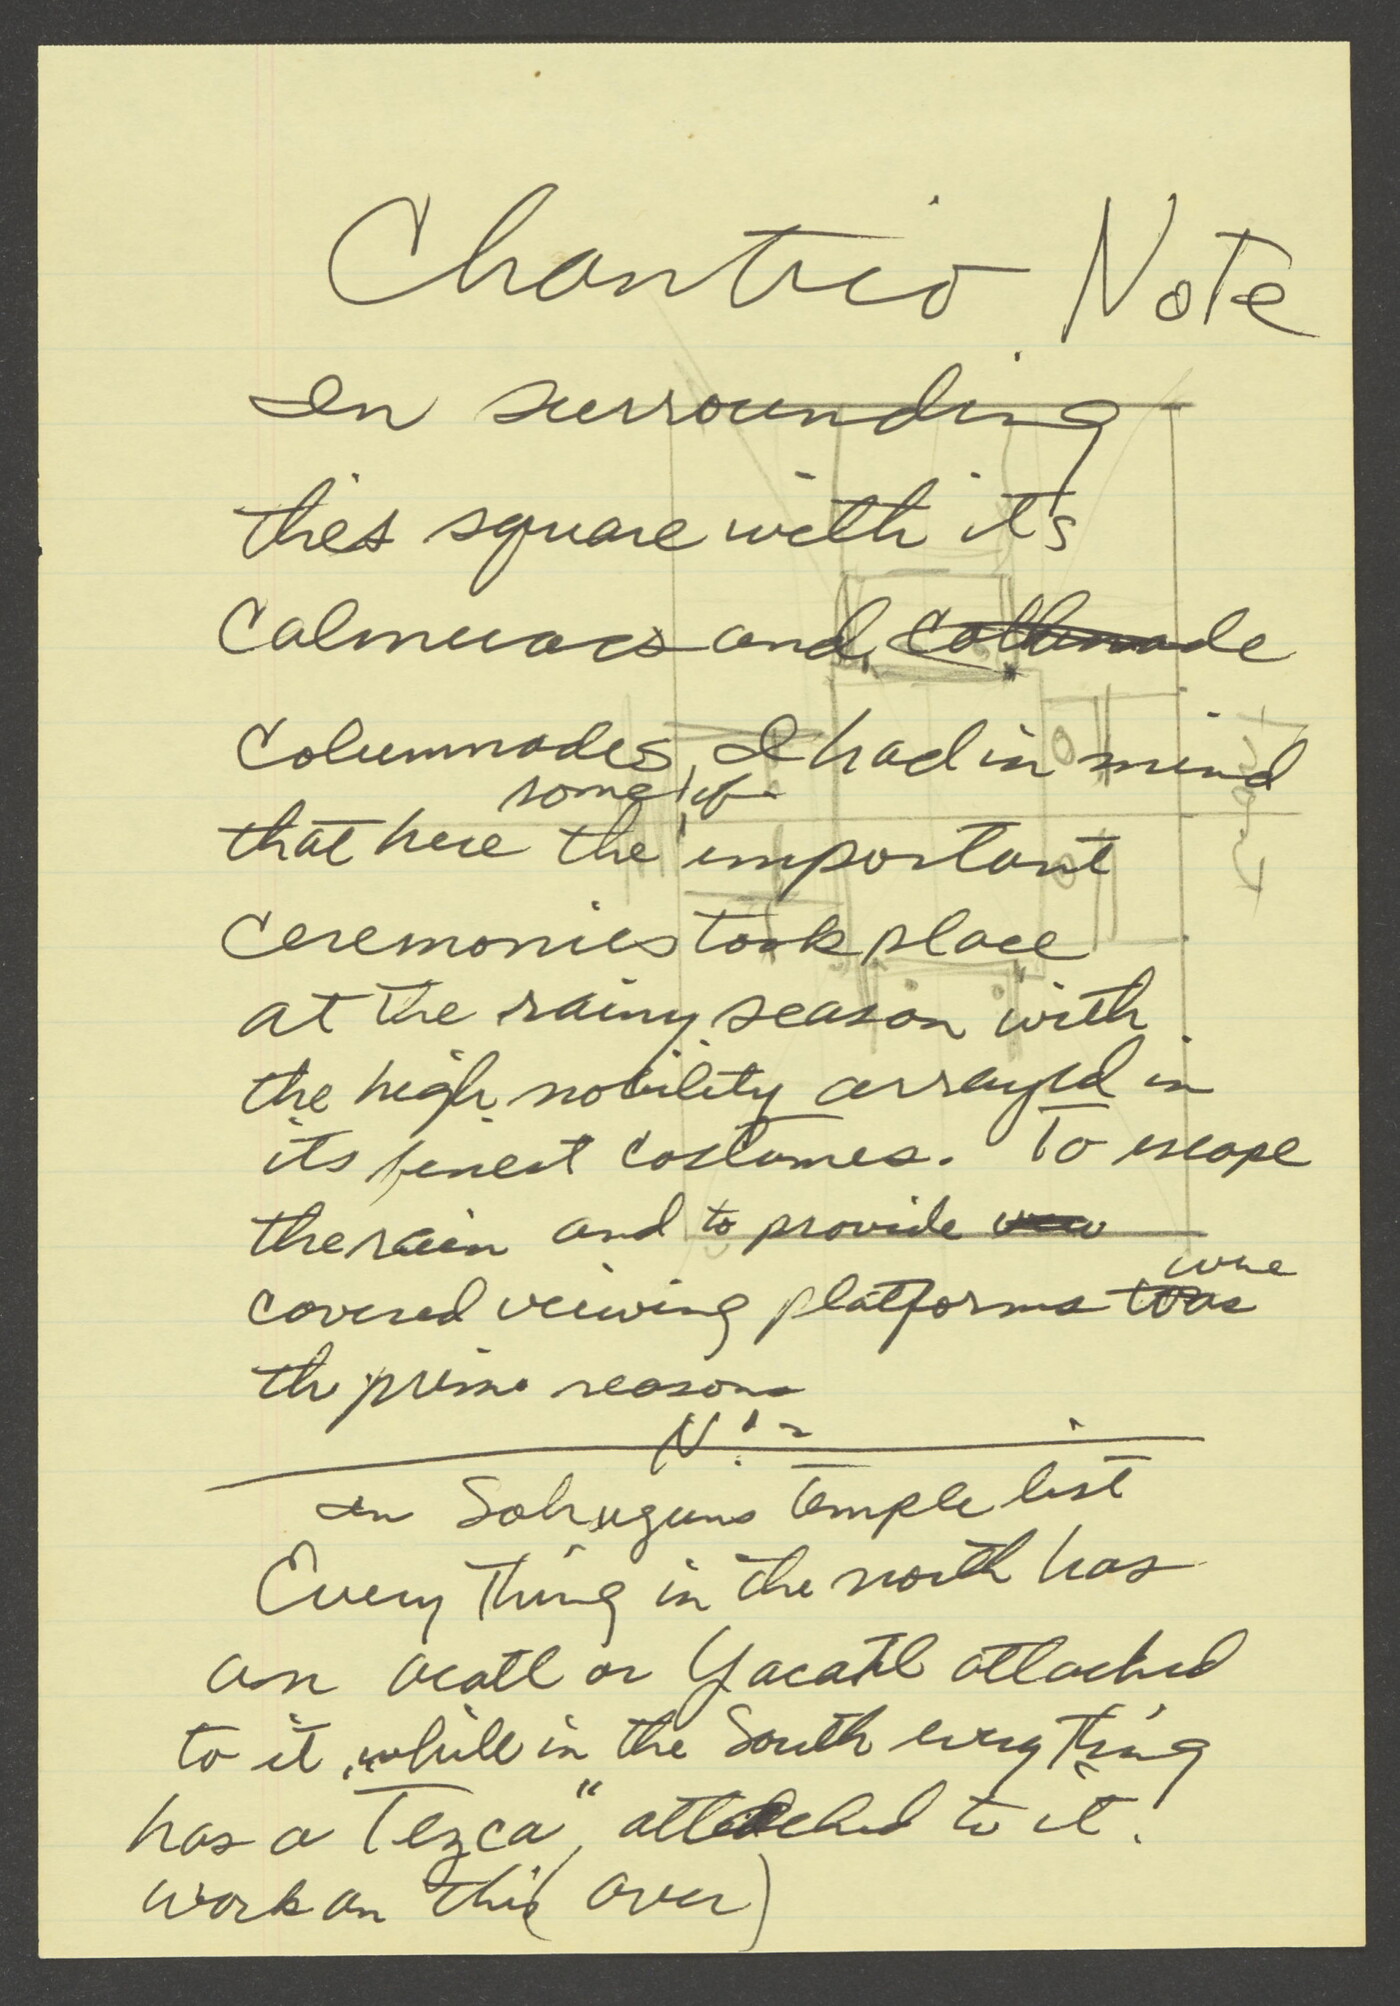 Chantico Note
In surrounding
this square with it's
Calmecacs and
Columnades, I had in mind
some of
that here the important
ceremonies took place
at the rainy season with
the high nobility arrayed in
its finest costumes. To escape
the rain and to provide
were
covered viewing platforms was
th prime reasons
In Sahaguns temple list
Every thing in the north has
an acatl or Yacatl attached
to it, while in the South everything
has a "Tezca", attached to it.
work on this (over)